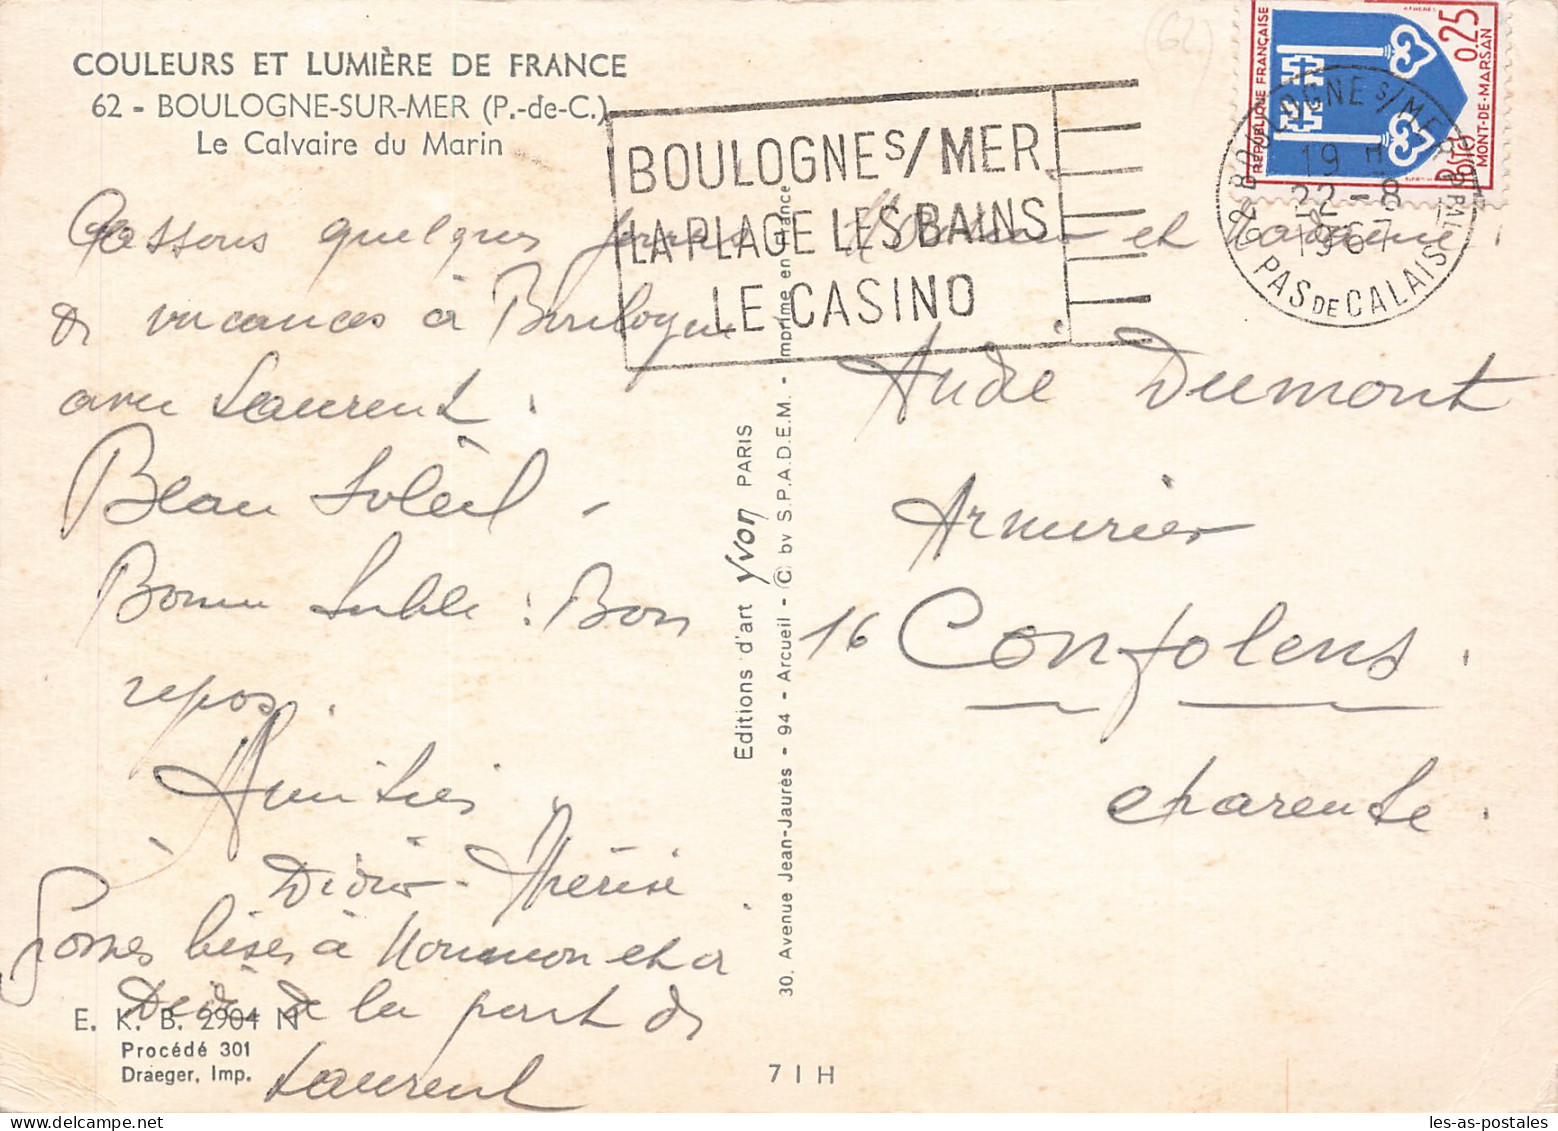 COULEURS ET LUMIÈRE DE FRANCE
62 - BOULOGNE-SUR-MER (P.-de-C.)
Le Calvaire du Marin
(62)
BOULOGNE S/MER
LA PLAGE LES BAINS
LE CASINO
RÉPUBLIQUE FRANÇAISE
0,25
MONT-DE-MARSAN
Postes
62 BOULOGNE S/MER PPAL
19 H
22 - 8
1967
PAS DE CALAIS
Passons quelques jours
de vacances à Boulogne
avec Laurent.
Beau Soleil -
Bonne Table : Bon
repos.
Amitiés.
Didier - Thérèse
Grosses bises à Nounon et à
Dédé de la part de
Laurent
Monsieur et Madame
André Dumont
Armurier
16 Confolens.
Charente.
Editions d'art Yvon PARIS
30, Avenue Jean-Jaurès - 94 - Arcueil - © by S.P.A.D.E.M. - Imprimé en France
E. K. B. 2904 N
Procédé 301
Draeger, Imp.
7 I H
les-as-postales